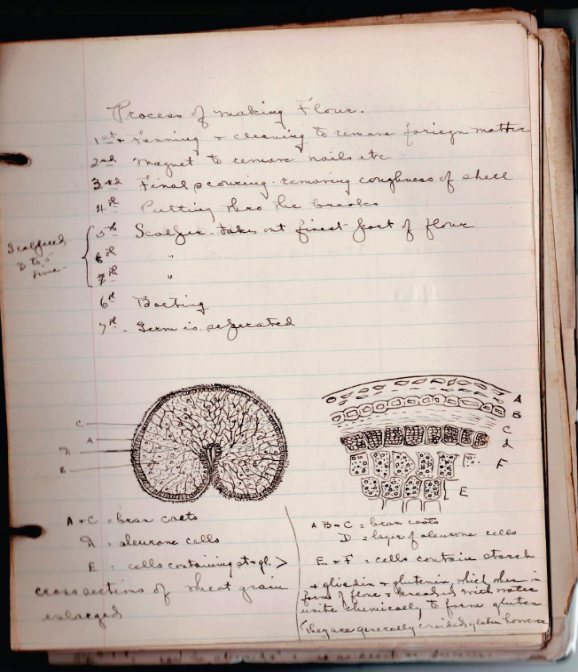 Process of making Flour.
1st Fanning + cleaning to remove foreign matter
2nd Magnet to remove nails etc
3rd Final scouring - removing roughness of shell
4th Putting thro the breaks
5th Scalper - takes out finest part of flour
6th "
7th "
Scalped
3 to 5
time
6th Boeting
7th Germ is seperated
C
A
D
B
A
B
C
d
F
E
A + C = bran coats
D = aleurone cells
E = cells containing st + gl. >
cross sections of wheat grain
enlarged
A B + C = bran coats
D = layer of aleurone cells
E + F = cells contain starch
+ gliadin + glutenin, which when in
form of flour + kneaded with water
unite chemically to form gluten
They are generally considered gluten however